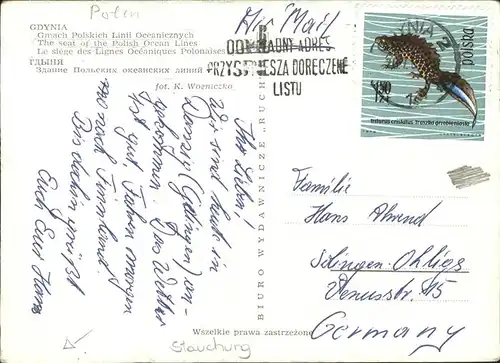 Polen
GDYNIA
Gmach Polskich Linii Oceanicznych
The seat of the Polish Ocean Lines
Le siège des Lignes Océaniques Polonaises
ГДЫНЯ
Здание Польских океанских линий
fot. K. Woźniczko
Air Mail
DOKŁADNY ADRES
PRZYSPIESZA DORĘCZENIE
LISTU
GDYNIA
2
POLSKA
1,50
ZŁ
Triturus cristatus Traszka grzebieniasta
BIURO WYDAWNICZE „RUCH
Ihr Lieben!
Wir sind heute in
Danzig (Gdingen) an-
gekommen. Das Wetter
ist gut. Fahren morgen
nach Finnland
Bis dahin grüßt
Euch Euer Hans
Familie
Hans Ahrend
Solingen-Ohligs
Venusstr. 15
Germany
Wszelkie prawa zastrzeżone
Stauchung